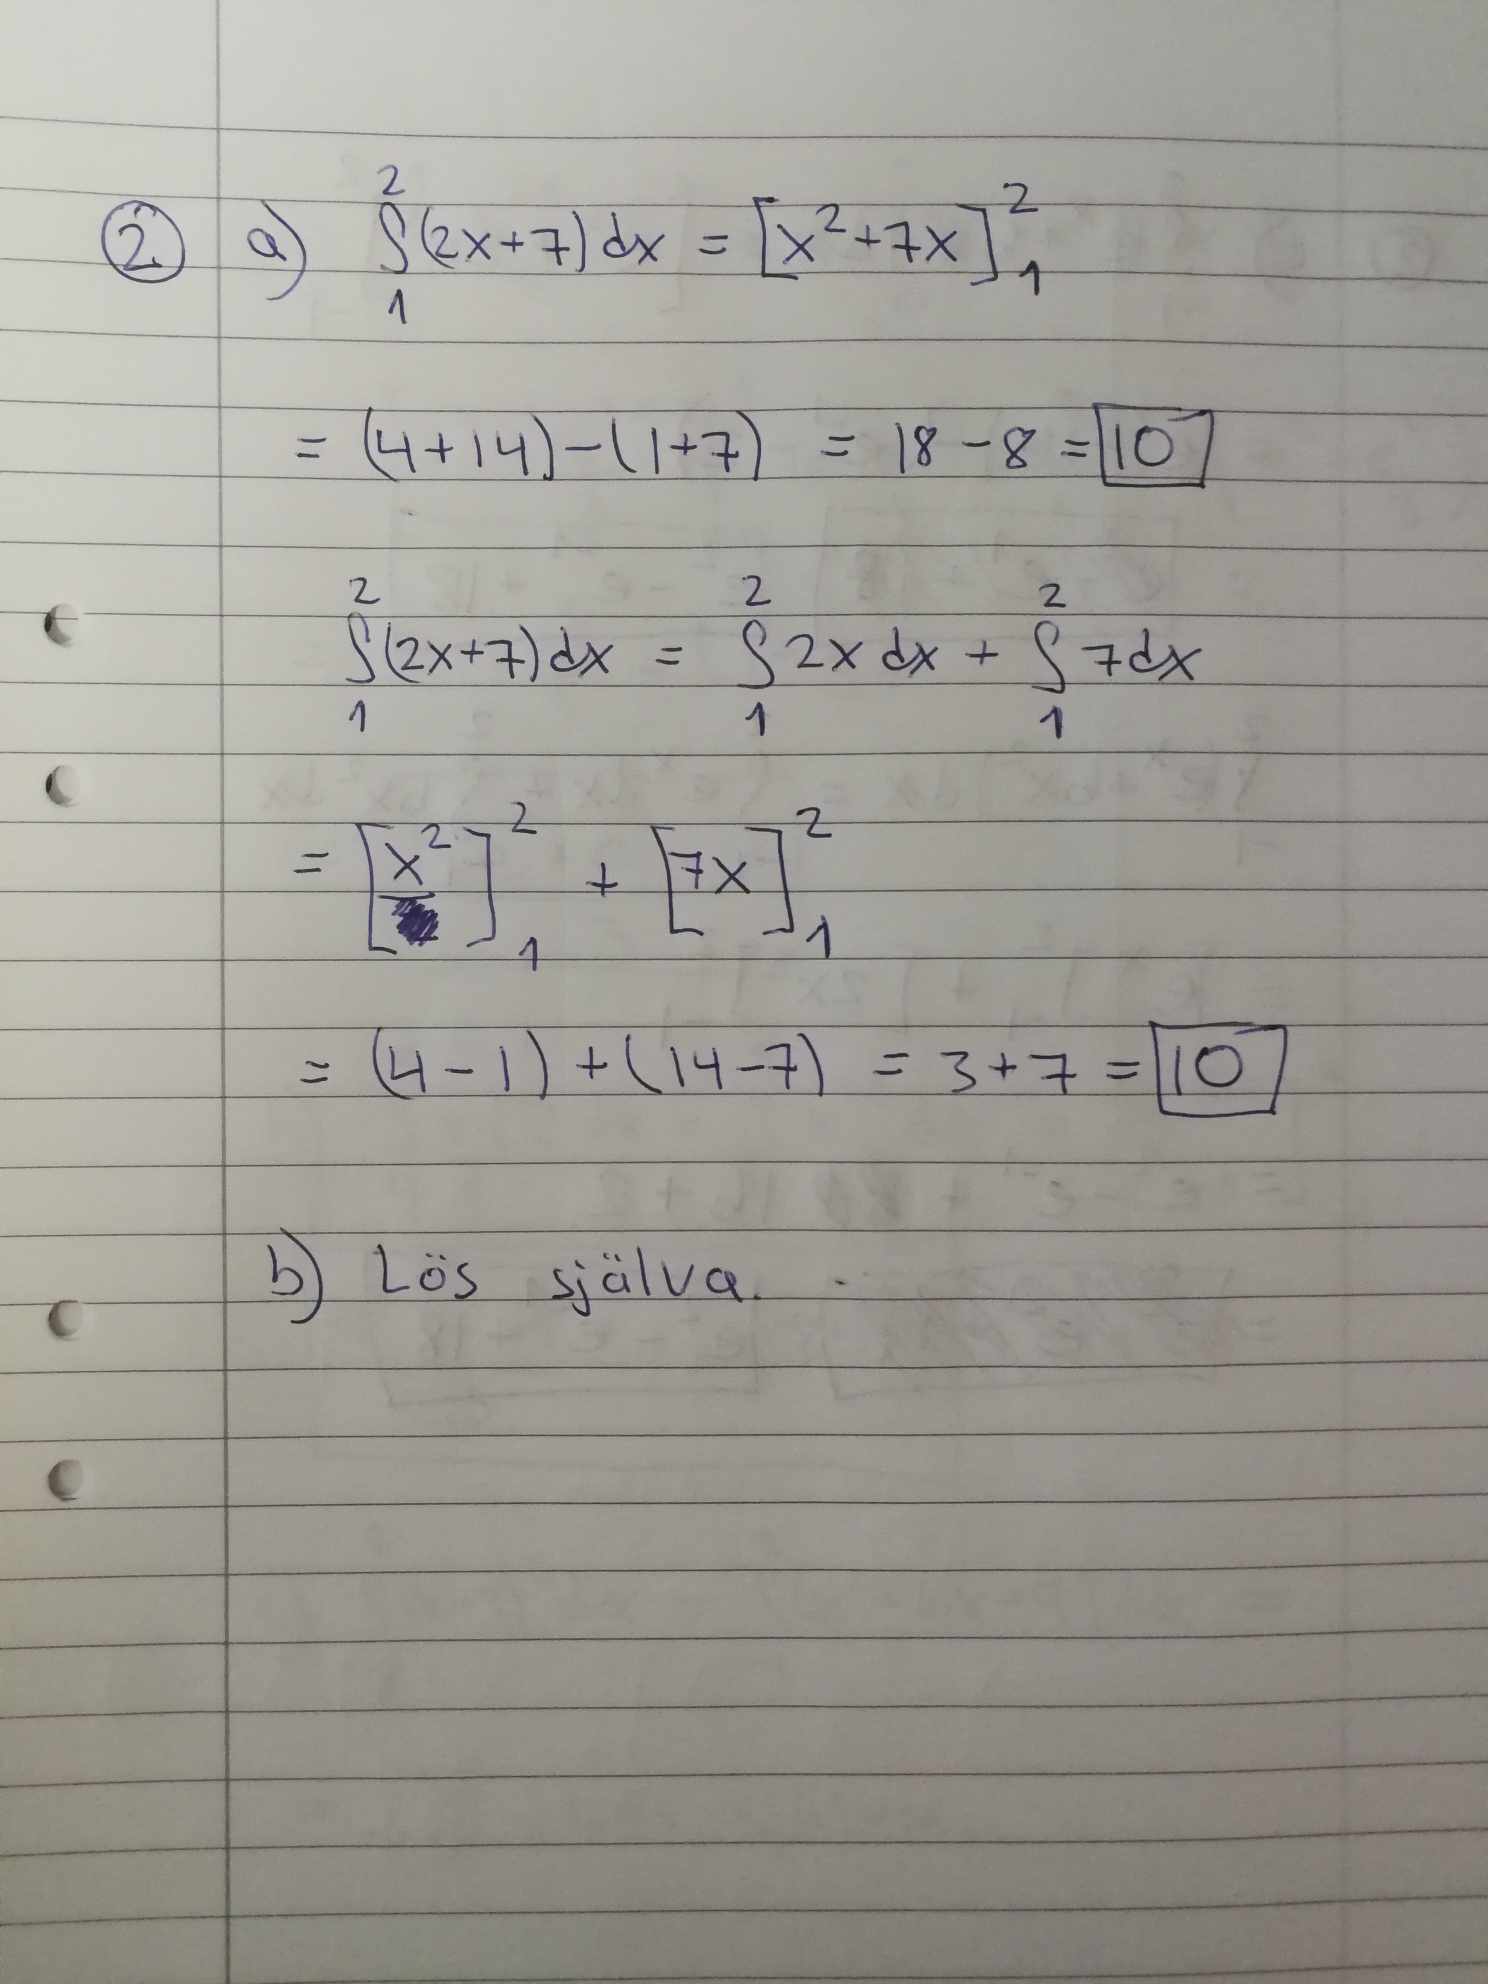 2 a) ∫₁² (2x+7) dx = [x²+7x]₁²
= (4+14)-(1+7) = 18-8 = 10
∫₁² (2x+7) dx = ∫₁² 2x dx + ∫₁² 7dx
= [x²]₁² + [7x]₁²
= (4-1)+(14-7) = 3+7 = 10
b) Lös själva.